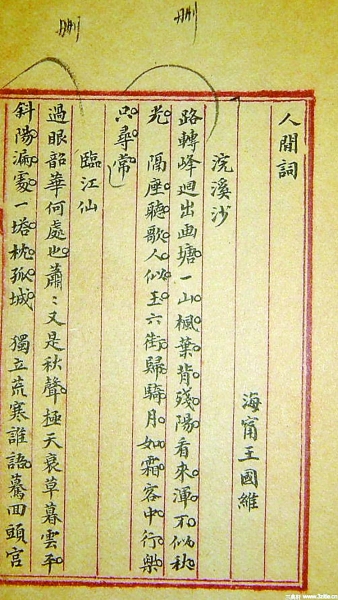 刪
刪
人間詞
海甯王國維
浣溪沙
路轉峰迴出画塘一山楓葉背殘陽看來渾不似秋
光 隔座聽歌人似玉六街歸騎月如霜客中行樂
只尋常
臨江仙
過眼韶華何處也蕭〻又是秋聲極天衰草暮雲平
斜陽漏處一塔枕孤城 獨立荒寒誰語驀回頭宮